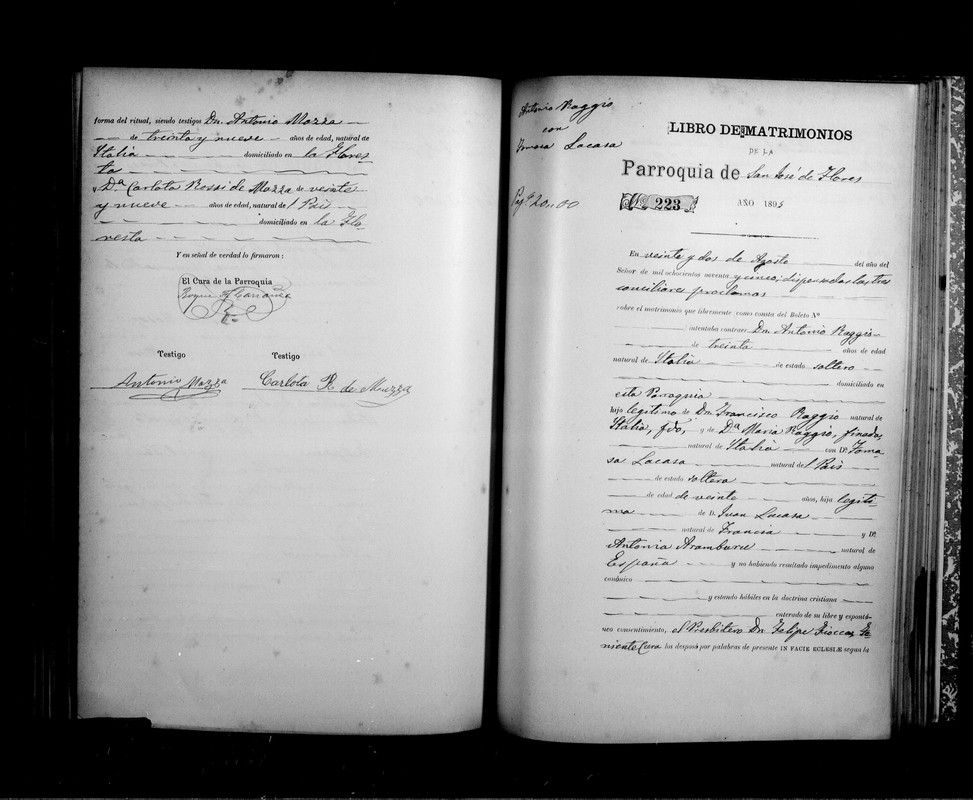 forma del ritual, siendo testigos Dn. Antonio Mazza
de treinta y nueve años de edad, natural de
Italia domiciliado en la Flores
ta
y Da. Carlota Rossi de Mazza de veinte
y nueve años de edad, natural de l Pais
domiciliado en la Flo-
resta
Y en señal de verdad lo firmaron:
El Cura de la Parroquia
Testigo Testigo
Antonio Mazza Carlota R. de Mazza
Antonio Raggio
con
Tomasa Lacasa
LIBRO DE MATRIMONIOS
DE LA
Parroquia de San José de Flores
223 AÑO 1895
En veinte y dos de Agosto del año del
Señor de mil ochocientos noventa y cinco, dispensadas las tres
conciliares proclamas
sobre el matrimonio que libremente como consta del Boleto Nº
intentaba contraer Dn. Antonio Raggio
de treinta años de edad
natural de Italia de estado soltero
domiciliado en
esta Parroquia
hijo legitimo de Dn. Francisco Raggio natural de
Italia, fdo, y de Da. Maria Raggio, finada,
natural de Italia con Da. Toma-
sa Lacasa natural de l Pais
de estado soltera
de edad de veinte años, hija legiti-
ma de D. Juan Lacasa
natural de Francia y Da.
Antonia Aramburu natural de
España y no habiendo resultado impedimento alguno
canónico
y estando hábiles en la doctrina cristiana
enterado de su libre y espontá-
neo consentimiento, el Presbitero Dn. Felipe Te
niente Cura los desposó por palabras de presente IN FACIE ECLESIÆ segun la